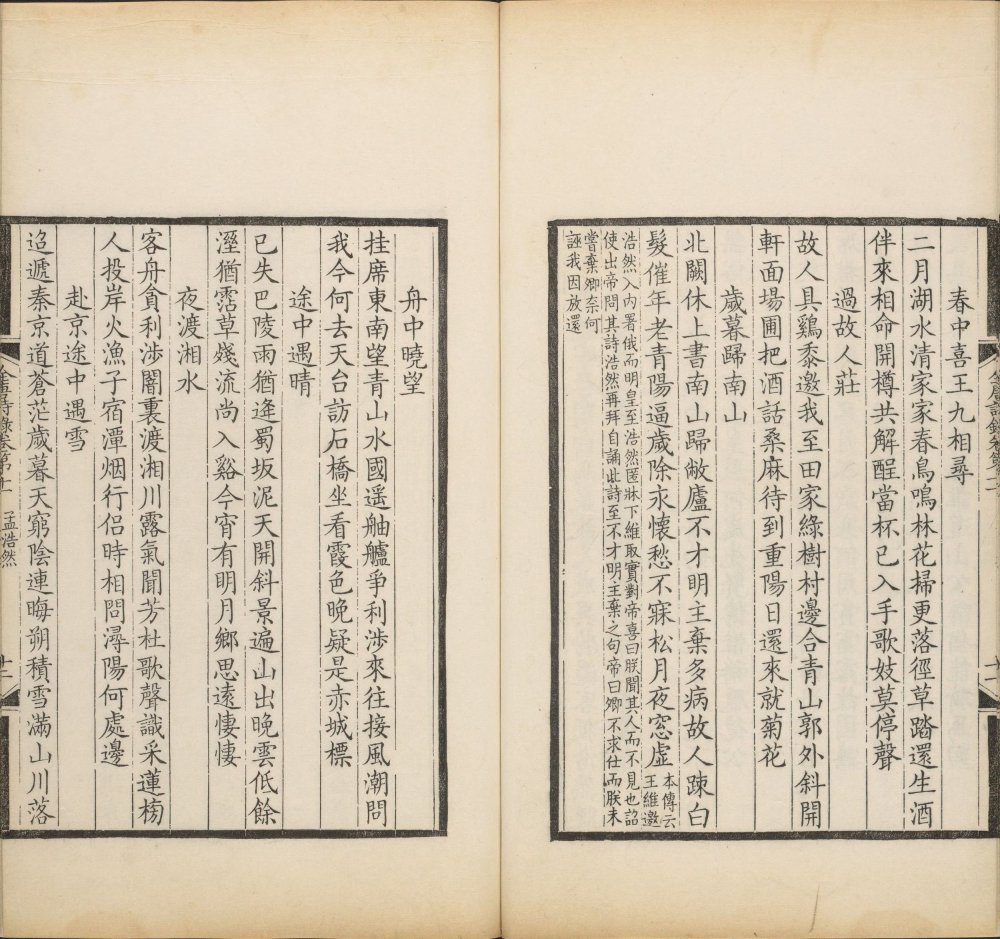 春中喜王九相尋
二月湖水清家家春鳥鳴林花掃更落徑草踏還生酒
伴來相命開樽共解酲當杯已入手歌妓莫停聲
過故人莊
故人具鷄黍邀我至田家綠樹村邊合青山郭外斜開
軒面場圃把酒話桑麻待到重陽日還來就菊花
歲暮歸南山
北闕休上書南山歸敝廬不才明主棄多病故人踈白
髮催年老青陽逼歲除永懷愁不寐松月夜窓虛
本傳云
王維邀
浩然入内署俄而明皇至浩然匿牀下維取實對帝喜曰朕聞其人而不見也詔
使出帝問其詩浩然再拜自誦此詩至不才明主棄之句帝曰卿不求仕而朕未
嘗棄卿柰何
誣我因放還
舟中曉望
挂席東南望青山水國遥舳艫爭利涉來往接風潮問
我今何去天台訪石橋坐看霞色晚疑是赤城標
途中遇晴
已失巴陵雨猶逢蜀坂泥天開斜景遍山出晚雲低餘
溼猶霑草殘流尚入谿今宵有明月鄉思遠悽悽
夜渡湘水
客舟貪利涉闇裏渡湘川露氣聞芳杜歌聲識采蓮榜
人投岸火漁子宿潭烟行侣時相問潯陽何處邊
赴京途中遇雪
迢遞秦京道蒼茫歲暮天窮陰連晦朔積雪滿山川落
孟浩然
十二